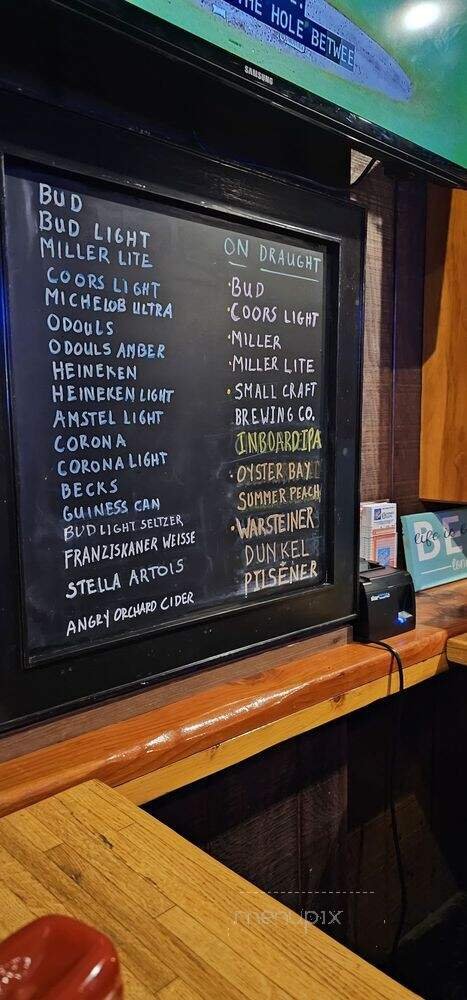 THE HOLE BETWEE
SAMSUNG
BUD
BUD LIGHT
MILLER LITE
COORS LIGHT
MICHELOB ULTRA
ODOULS
ODOULS AMBER
HEINEKEN
HEINEKEN LIGHT
AMSTEL LIGHT
CORONA
CORONA LIGHT
BECKS
GUINESS CAN
BUD LIGHT SELTZER
FRANZISKANER WEISSE
STELLA ARTOIS
ANGRY ORCHARD CIDER
ON DRAUGHT
·BUD
·COORS LIGHT
·MILLER
·MILLER LITE
·SMALL CRAFT
BREWING CO.
INBOARD IPA
·OYSTER BAY
SUMMER PEACH
·WARSTEINER
DUNKEL
PILSENER
life is
BE
star
menupix